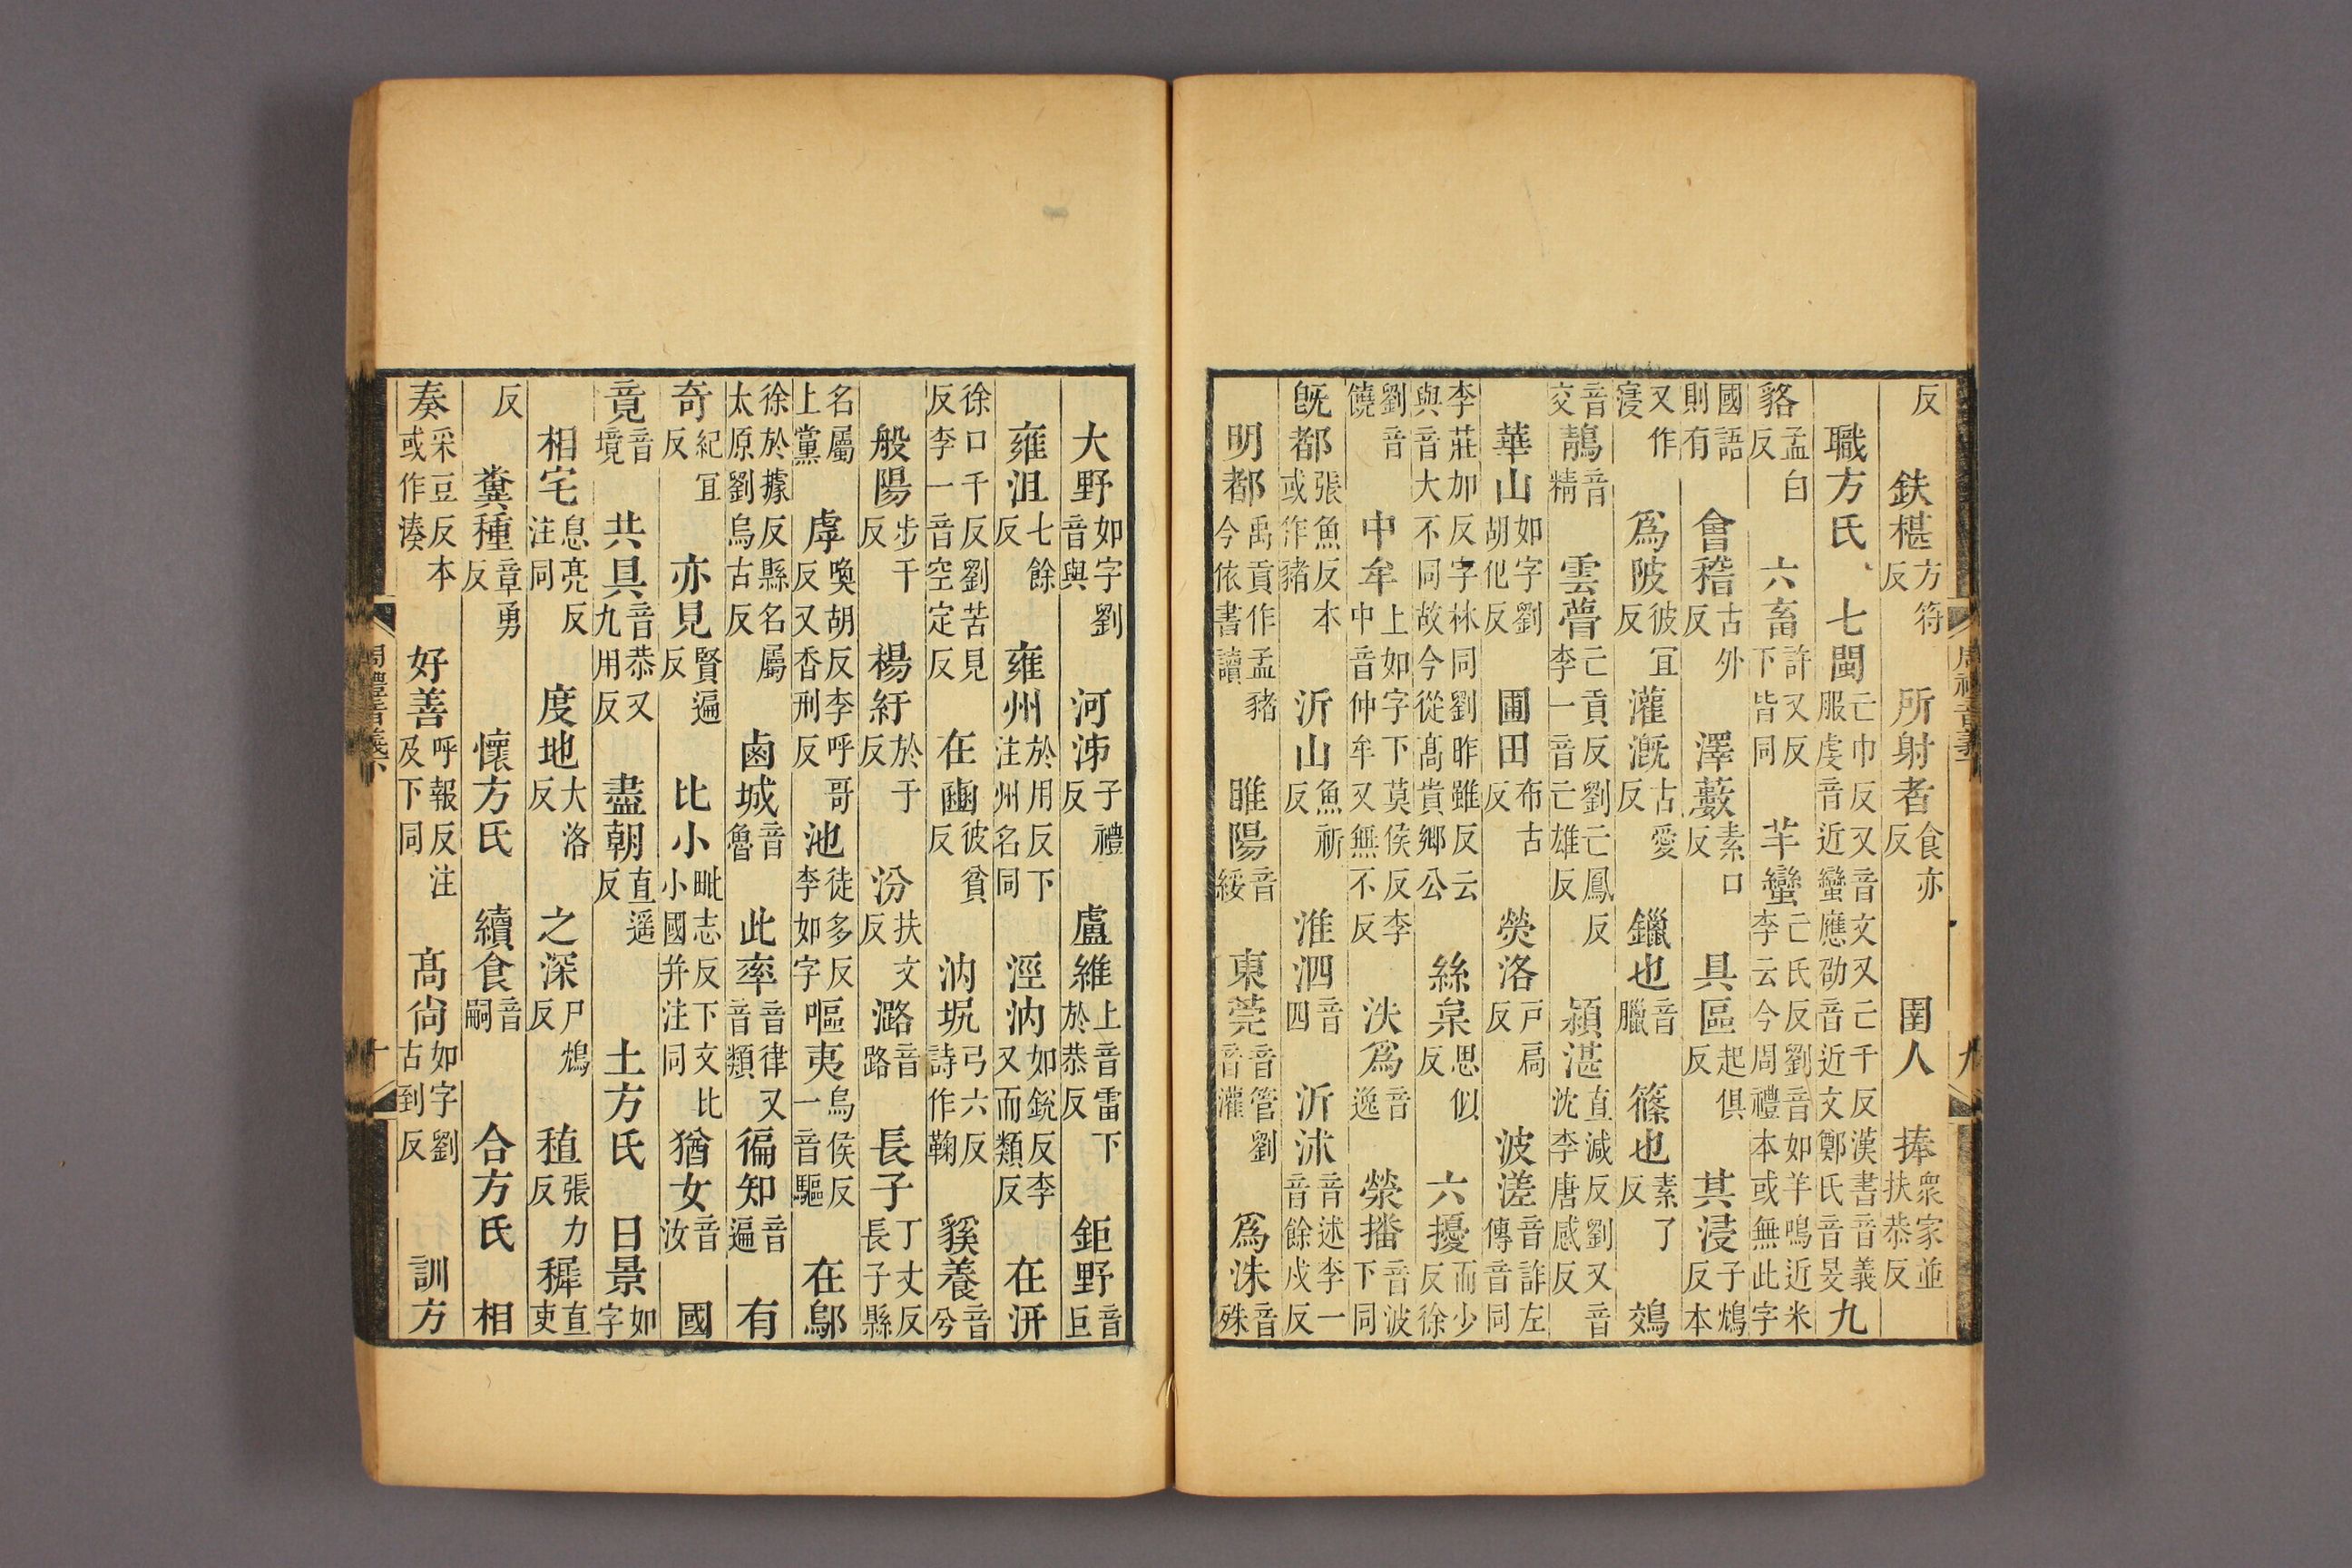 周禮音義
九
反　鈇椹方符反　所射者食亦反　圉人　捧衆家並扶恭反
職方氏　七閩亡巾反又音文又亡千反漢書音義服虔音近蠻應劭音近文鄭氏音旻　九
貉孟白反　六畜許又反下皆同　羋蠻亡氏反劉音如羊鳴近米李云今周禮本或無此字
國語則有　會稽古外反　澤藪素口反　具區起俱反　其浸子鴆反本
又作寖　爲陂彼冝反　灌漑古愛反　鑞也音臘　篠也素了反　鵁
音交鶄音精　雲瞢亡貢反劉亡鳳反李一音亡雄反　潁湛直減反劉又音沈李唐感反
華山如字劉胡化反　圃田布古反　熒洛戸扃反　波溠音詐左傳音同
李莊加反字林同劉昨雖反云與音大不同故今從高貴鄉公　絲枲思似反　六擾而少反徐
劉音饒　中牟上如字下莫侯反李中音仲牟又無不反　泆爲音逸　滎播音波下同
旣都張魚反本或作豬　沂山魚祈反　淮泗音四　沂沭音述李一音餘戍反
明都禹貢作孟豬今依書讀　睢陽音綏　東莞音管劉音灌　爲洙音殊
大野如字劉音與　河泲子禮反　盧維上音雷下於恭反　鉅野音巨
雍沮七餘反　雍州於用反下注州名同　涇汭如銳反李又而類反　在汧
徐口千反劉苦見反李一音空定反　在豳彼貧反　汭坭弓六反詩作鞫　貕養音兮
般陽步干反　楊紆於于反　汾扶文反　潞音路　長子丁丈反長子縣
名屬上黨　虖喚胡反李呼哥反又香刑反　池徒多反李如字　嘔夷烏侯反一音驅　在鄔
徐於據反縣名屬太原劉烏古反　鹵城音魯　此率音律又音類　徧知音遍　有
奇紀冝反　亦見賢遍反　比小毗志反下文比小國并注同　猶女音汝　國
竟音境　共具音恭又九用反　盡朝直遥反　土方氏　日景如字
相宅息亮反注同　度地大洛反　之深尸鴆反　稙張力反　穉直吏
反　糞種章勇反　懷方氏　續食音嗣　合方氏　相
奏采豆反本或作湊　好善呼報反注及下同　高尙如字劉古到反　訓方
周禮音義下
十